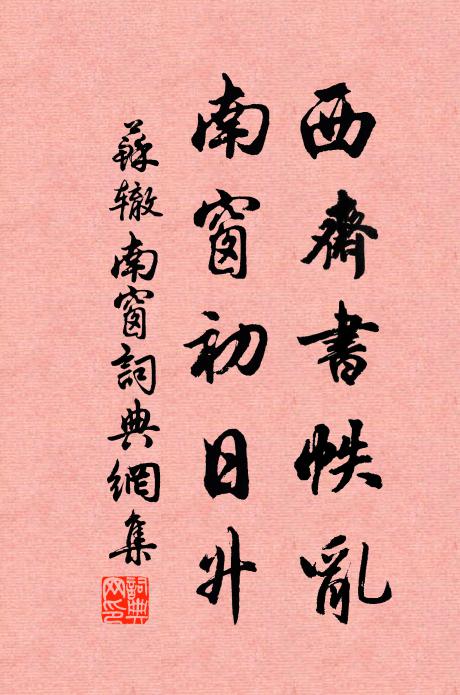 西齋書帙亂
南窗初日升
蘇轍南窗詞典網集
詞典網印